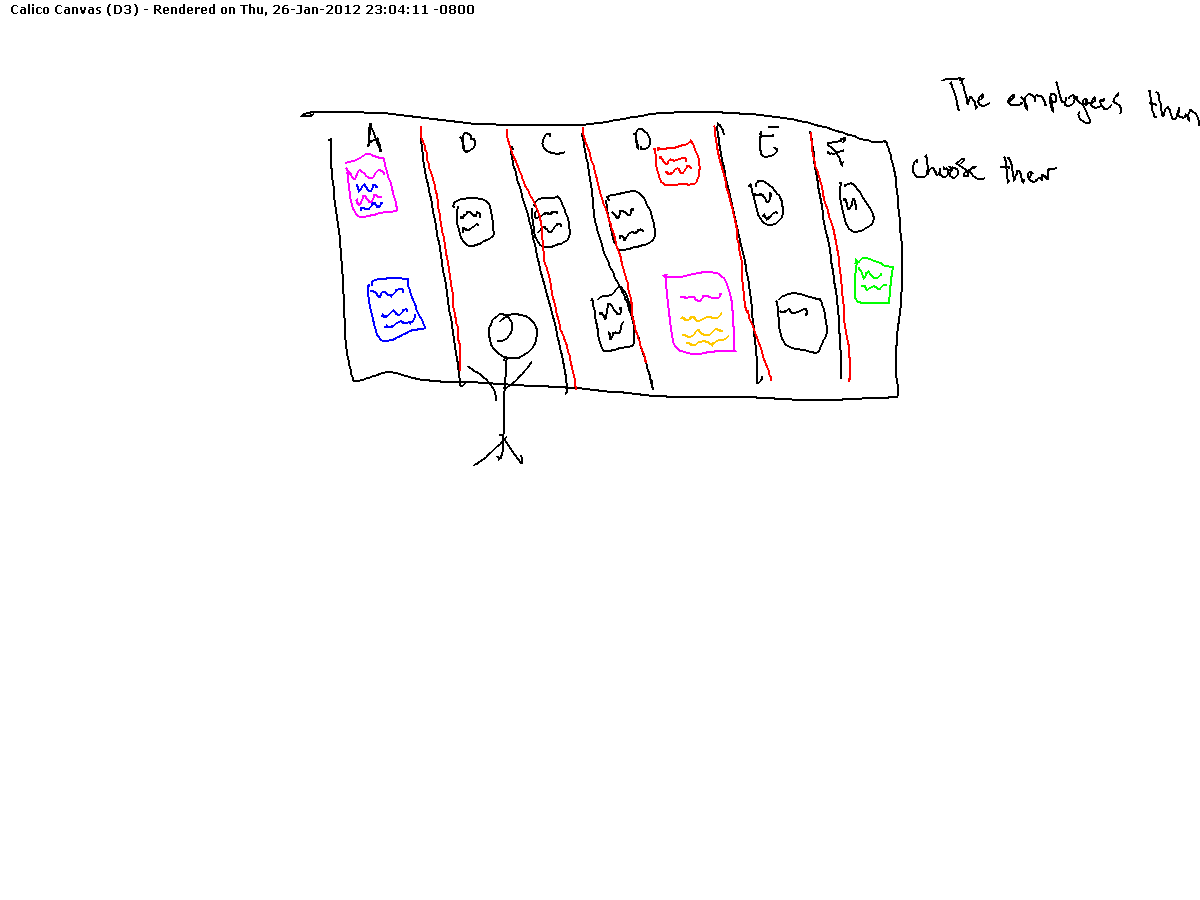 Calico Canvas (D3) - Rendered on Thu, 26-Jan-2012 23:04:11 -0800
The employees then
choose them
A B C D E F